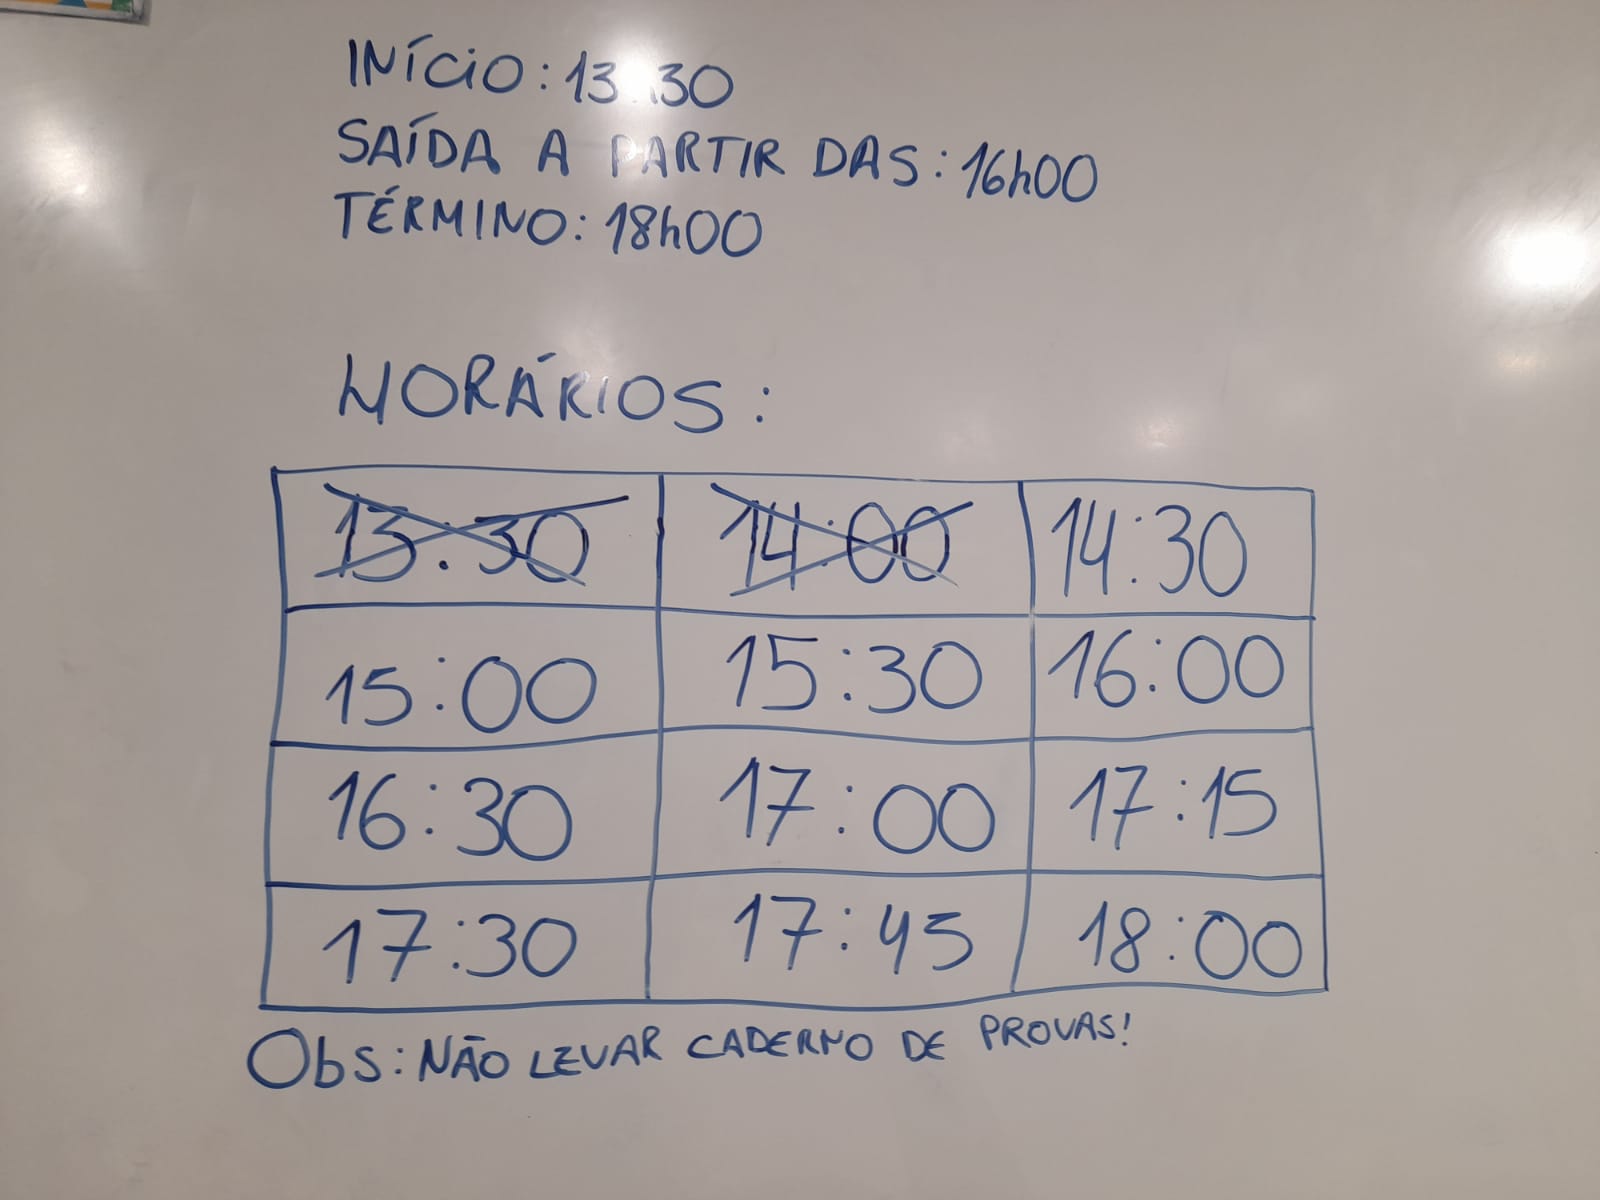 INÍCIO: 13:30
SAÍDA A PARTIR DAS: 16h00
TÉRMINO: 18h00
HORÁRIOS:
13:30 14:00 14:30
15:00 15:30 16:00
16:30 17:00 17:15
17:30 17:45 18:00
Obs: NÃO LEVAR CADERNO DE PROVAS!